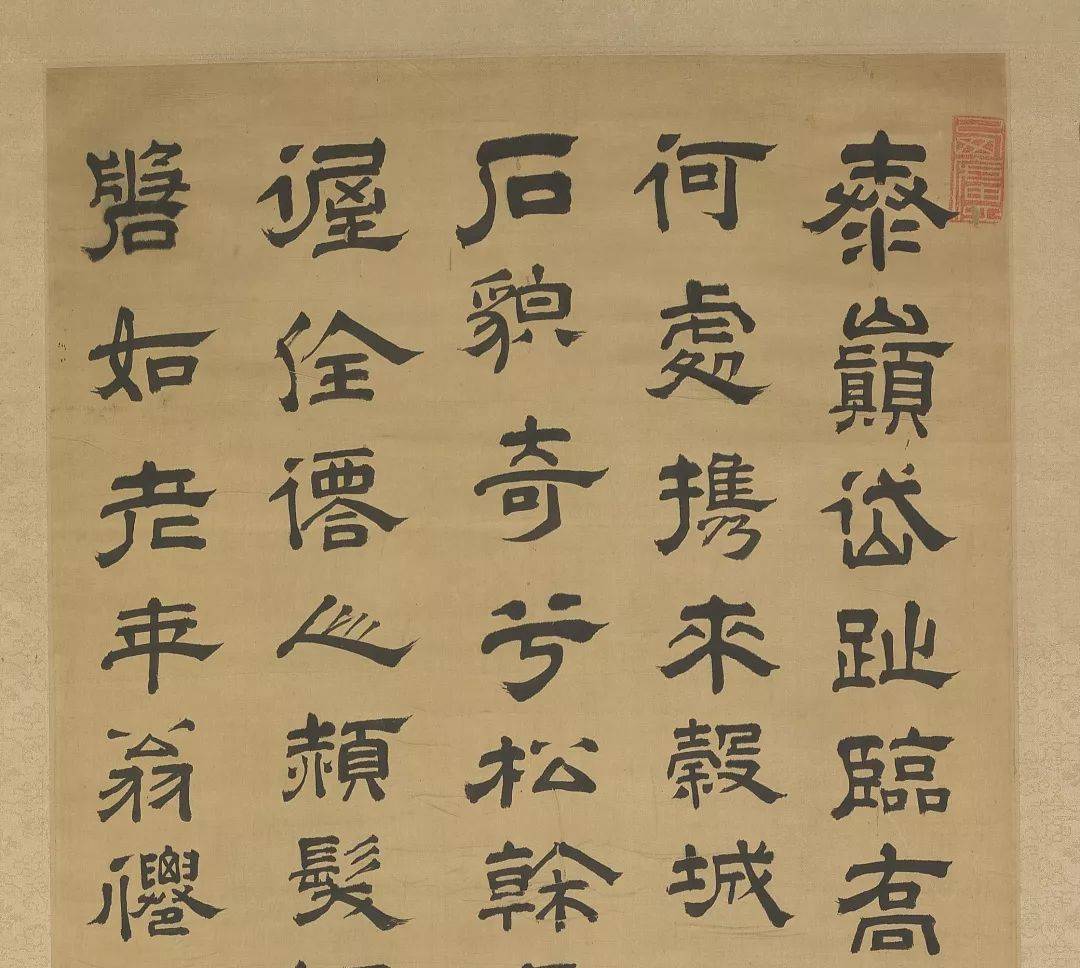 泰巔岱趾臨高
何處携來穀城
石貌奇兮松幹
偓佺髮
如老年翁